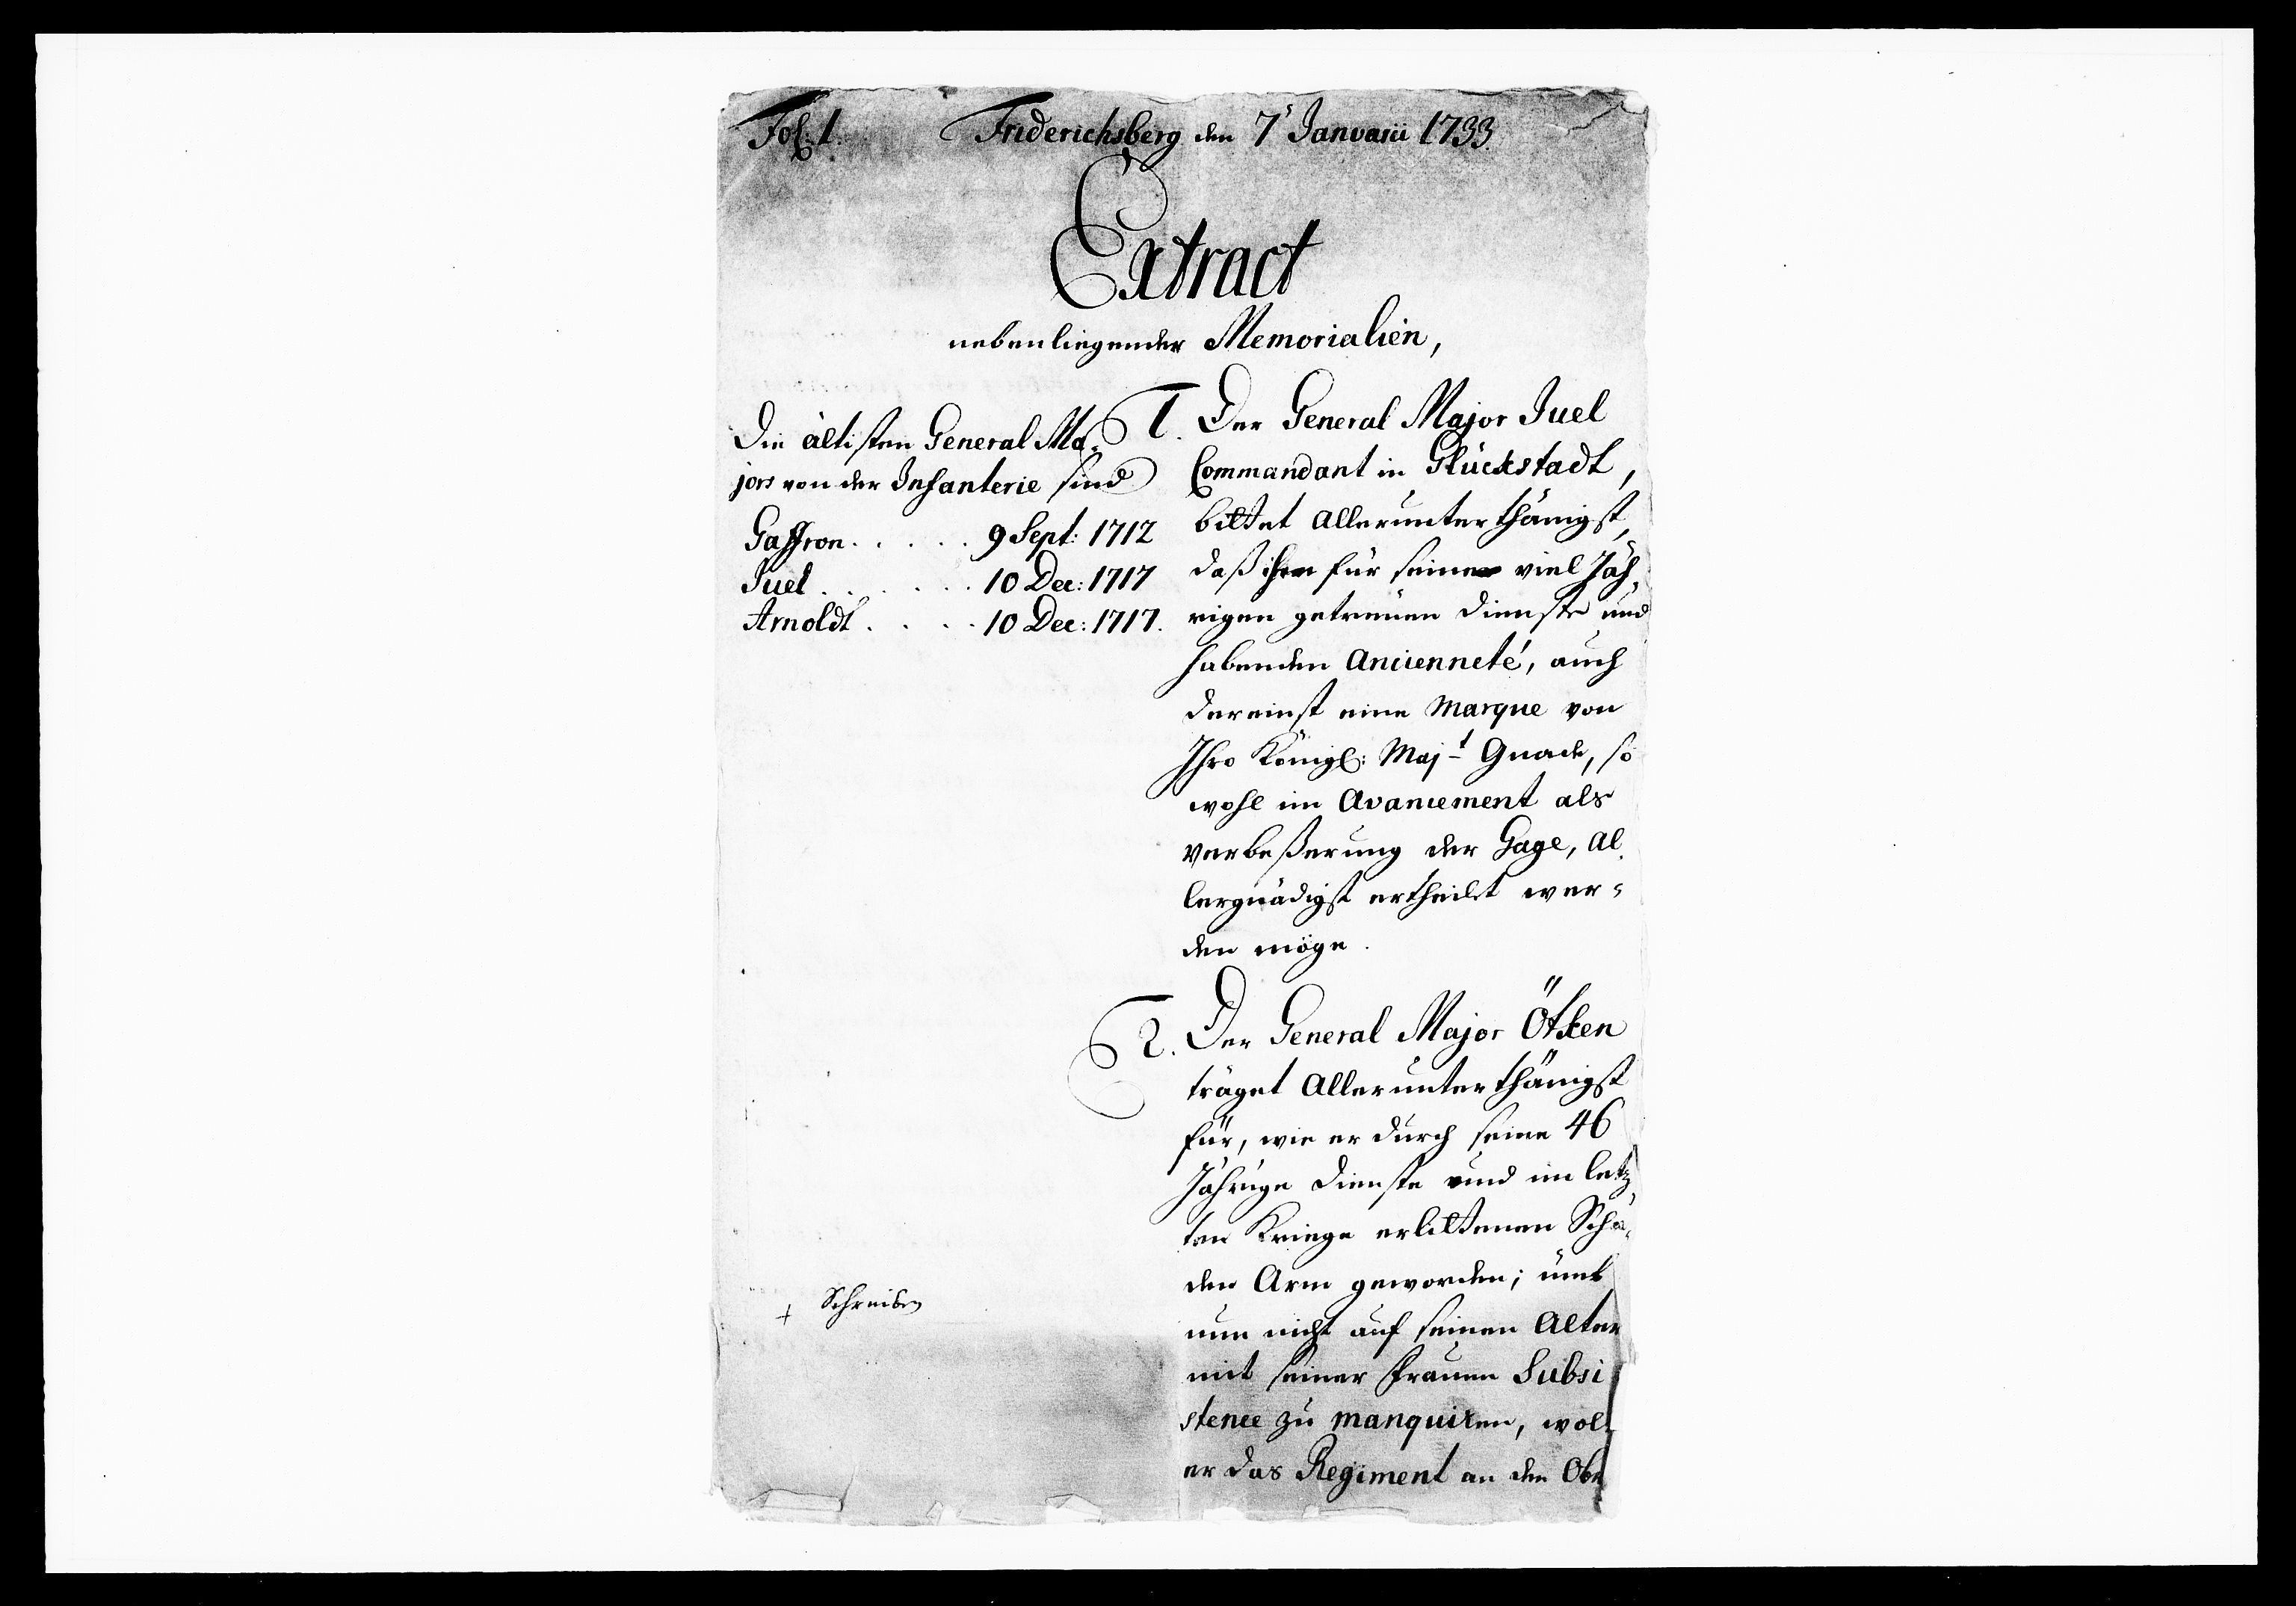 Fol: 1.
Friderichsberg den 7' Januarii 1733.
Extract
nebenliegender Memorialien,
Die ältisten General Ma-
jors von der Infanterie sind
Gaffron . . . . . 9 Sept: 1712
Juel . . . . . . 10 Dec: 1717
Arnoldt . . . . 10 Dec: 1717.
+ Schreiben
1. Der General Major Juel
Commandant in Glückstadt,
bittet allerunterthänigst,
daß ihm für seine viel Jäh-
rigen getreuen Dienste und
habenden Ancienneté, auch
dereinst eine Marque von
Ihro Königl: Majt Gnade, so
wohl im Avancement als
verbeßerung der Gage, al-
lergnädigst ertheilet wer-
den möge.
2. Der General Major Ötken
träget allerunterthänigst
für, wie er durch seine 46
Jährige Dienste und im letz
ten Kriege erlittenen Scha-
den Arm geworden; umb
nun nicht auf seinen Alter
mit seiner Frauen Subsi
stence zu manquiren, wol-
er das Regiment an den Obr